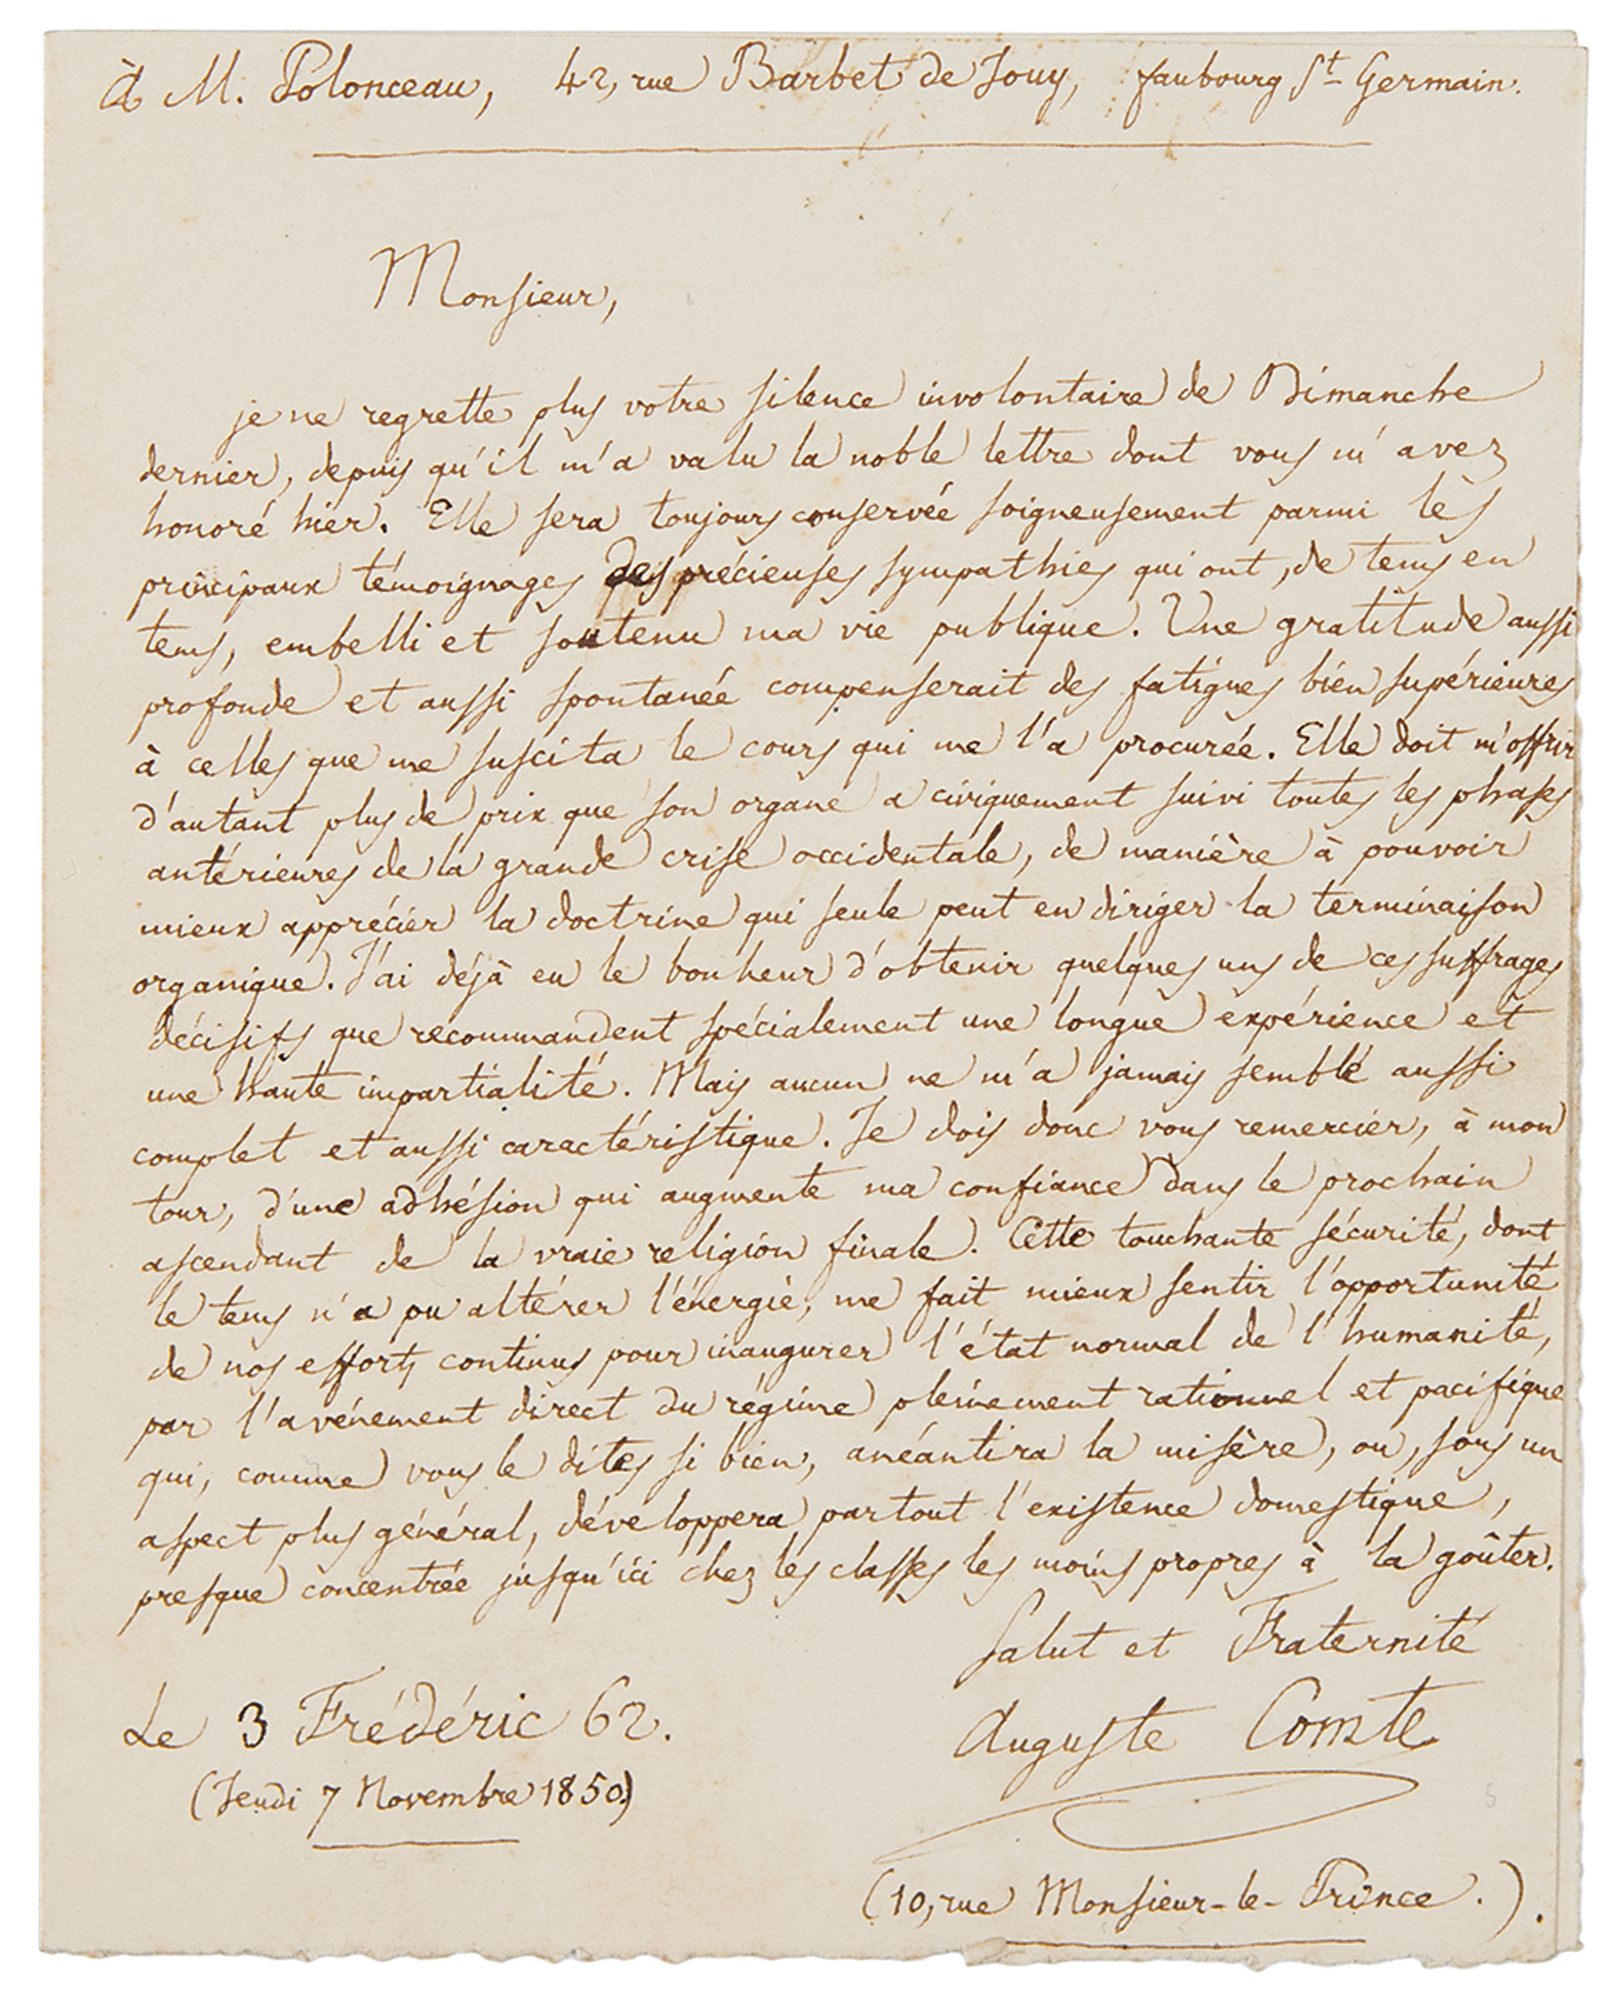 à M. Polonceau, 42, rue Barbet de Jouy, faubourg St Germain.
Monsieur,
je ne regrette plus votre silence involontaire de Dimanche
dernier, depuis qu'il m'a valu la noble lettre dont vous m'avez
honoré hier. Elle sera toujours conservée soigneusement parmi les
principaux témoignages des précieuses sympathies qui ont, de tems en
tems, embelli et soutenu ma vie publique. Une gratitude aussi
profonde et aussi spontanée compenserait des fatigues bien supérieures
à celles que me suscita le cours qui me l'a procurée. Elle doit m'offrir
d'autant plus de prix que son organe a civiquement suivi toutes les phases
antérieures de la grande crise occidentale, de manière à pouvoir
mieux apprécier la doctrine qui seule peut en diriger la terminaison
organique. J'ai déjà eu le bonheur d'obtenir quelques uns de ces suffrages
décisifs que recommandent spécialement une longue expérience et
une haute impartialité. Mais aucun ne m'a jamais semblé aussi
complet et aussi caractéristique. Je dois donc vous remercier, à mon
tour, d'une adhésion qui augmente ma confiance dans le prochain
ascendant de la vraie religion finale. Cette touchante sécurité, dont
le tems n'a pu altérer l'énergie, me fait mieux sentir l'opportunité
de nos efforts continus pour inaugurer l'état normal de l'humanité,
par l'avénement direct du régime pleinement rationnel et pacifique
qui, comme vous le dites si bien, anéantira la misère, ou, sous un
aspect plus général, développera partout l'existence domestique,
presque concentrée jusqu'ici chez les classes les moins propres à la goûter.
Salut et Fraternité
Le 3 Frédéric 62.
Auguste Comte
(Jeudi 7 Novembre 1850)
(10, rue Monsieur-le-Prince.).